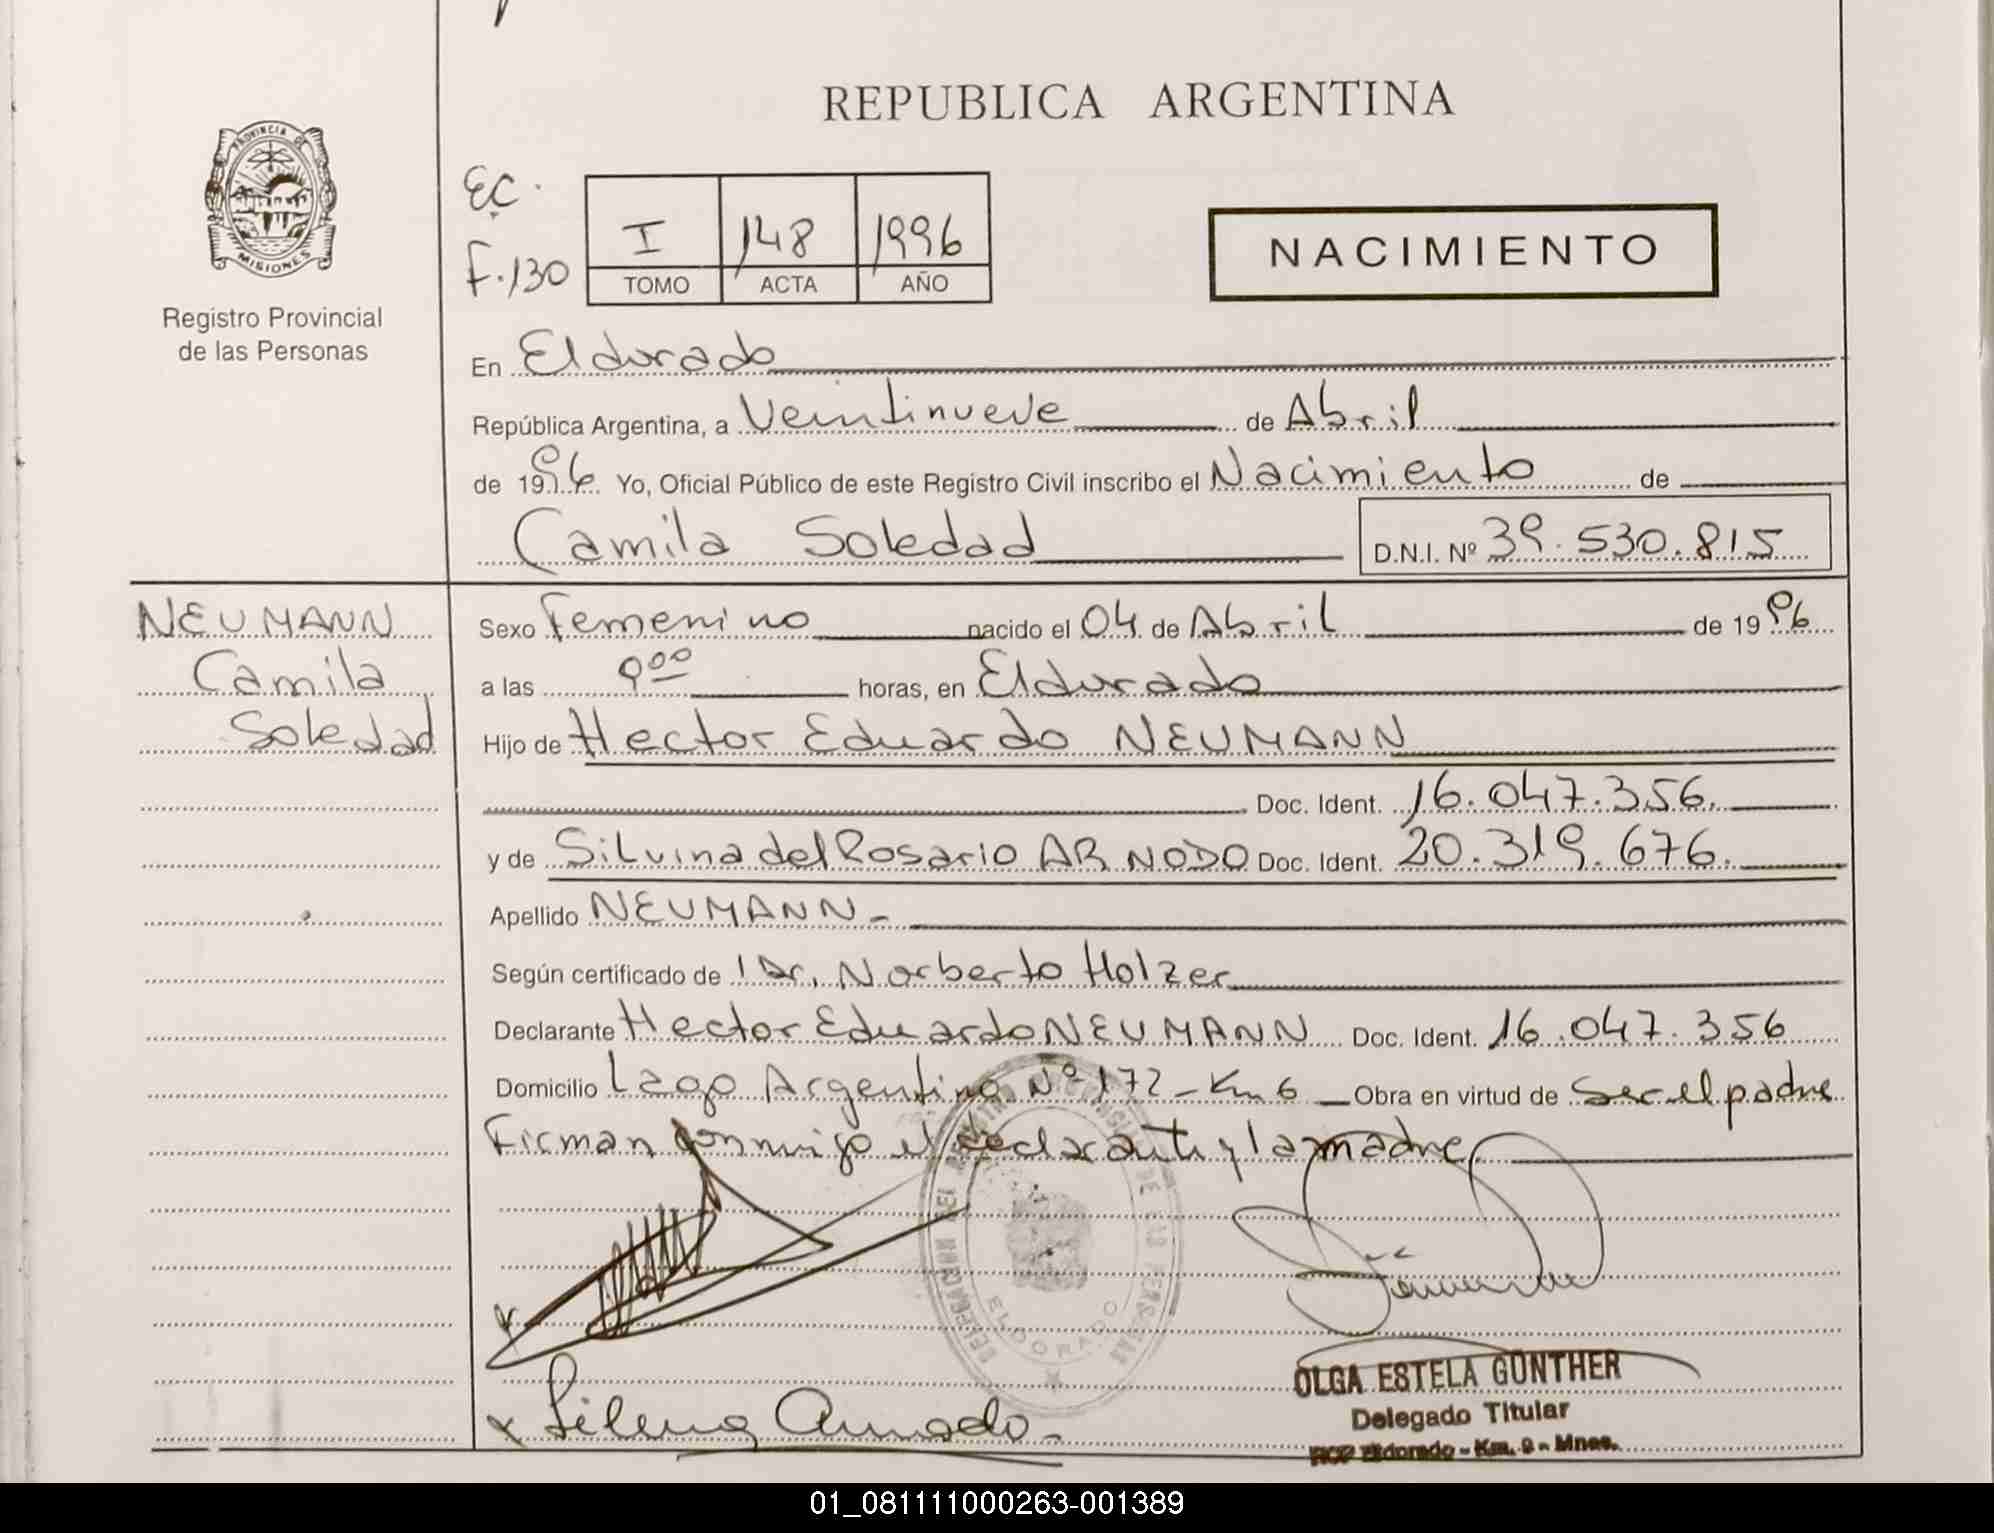 REPUBLICA ARGENTINA
PROVINCIA DE
MISIONES
Registro Provincial
de las Personas
EC.
F.130
I 148 1996
TOMO ACTA AÑO
NACIMIENTO
En Eldorado
República Argentina, a Veintinueve de Abril
de 1996 Yo, Oficial Público de este Registro Civil inscribo el Nacimiento de
Camila Soledad D.N.I. Nº 39.530.815
NEUMANN
Camila
Soledad
Sexo Femenino nacido el 04 de Abril de 1996
a las 9:00 horas, en Eldorado
Hijo de Hector Eduardo NEUMANN
Doc. Ident. 16.047.356.
y de Silvina del Rosario ARNODO Doc. Ident. 20.319.676.
Apellido NEUMANN-
Según certificado de l Dr. Norberto Holzer
Declarante Hector Eduardo NEUMANN Doc. Ident. 16.047.356
Domicilio Lago Argentino Nº 172-Km 6 Obra en virtud de Ser el padre
Firman conmigo el declarante y la madre
ELDORADO
OLGA ESTELA GÜNTHER
Delegado Titular
RCP Eldorado - Km. 9 - Mnes.
01_081111000263-001389